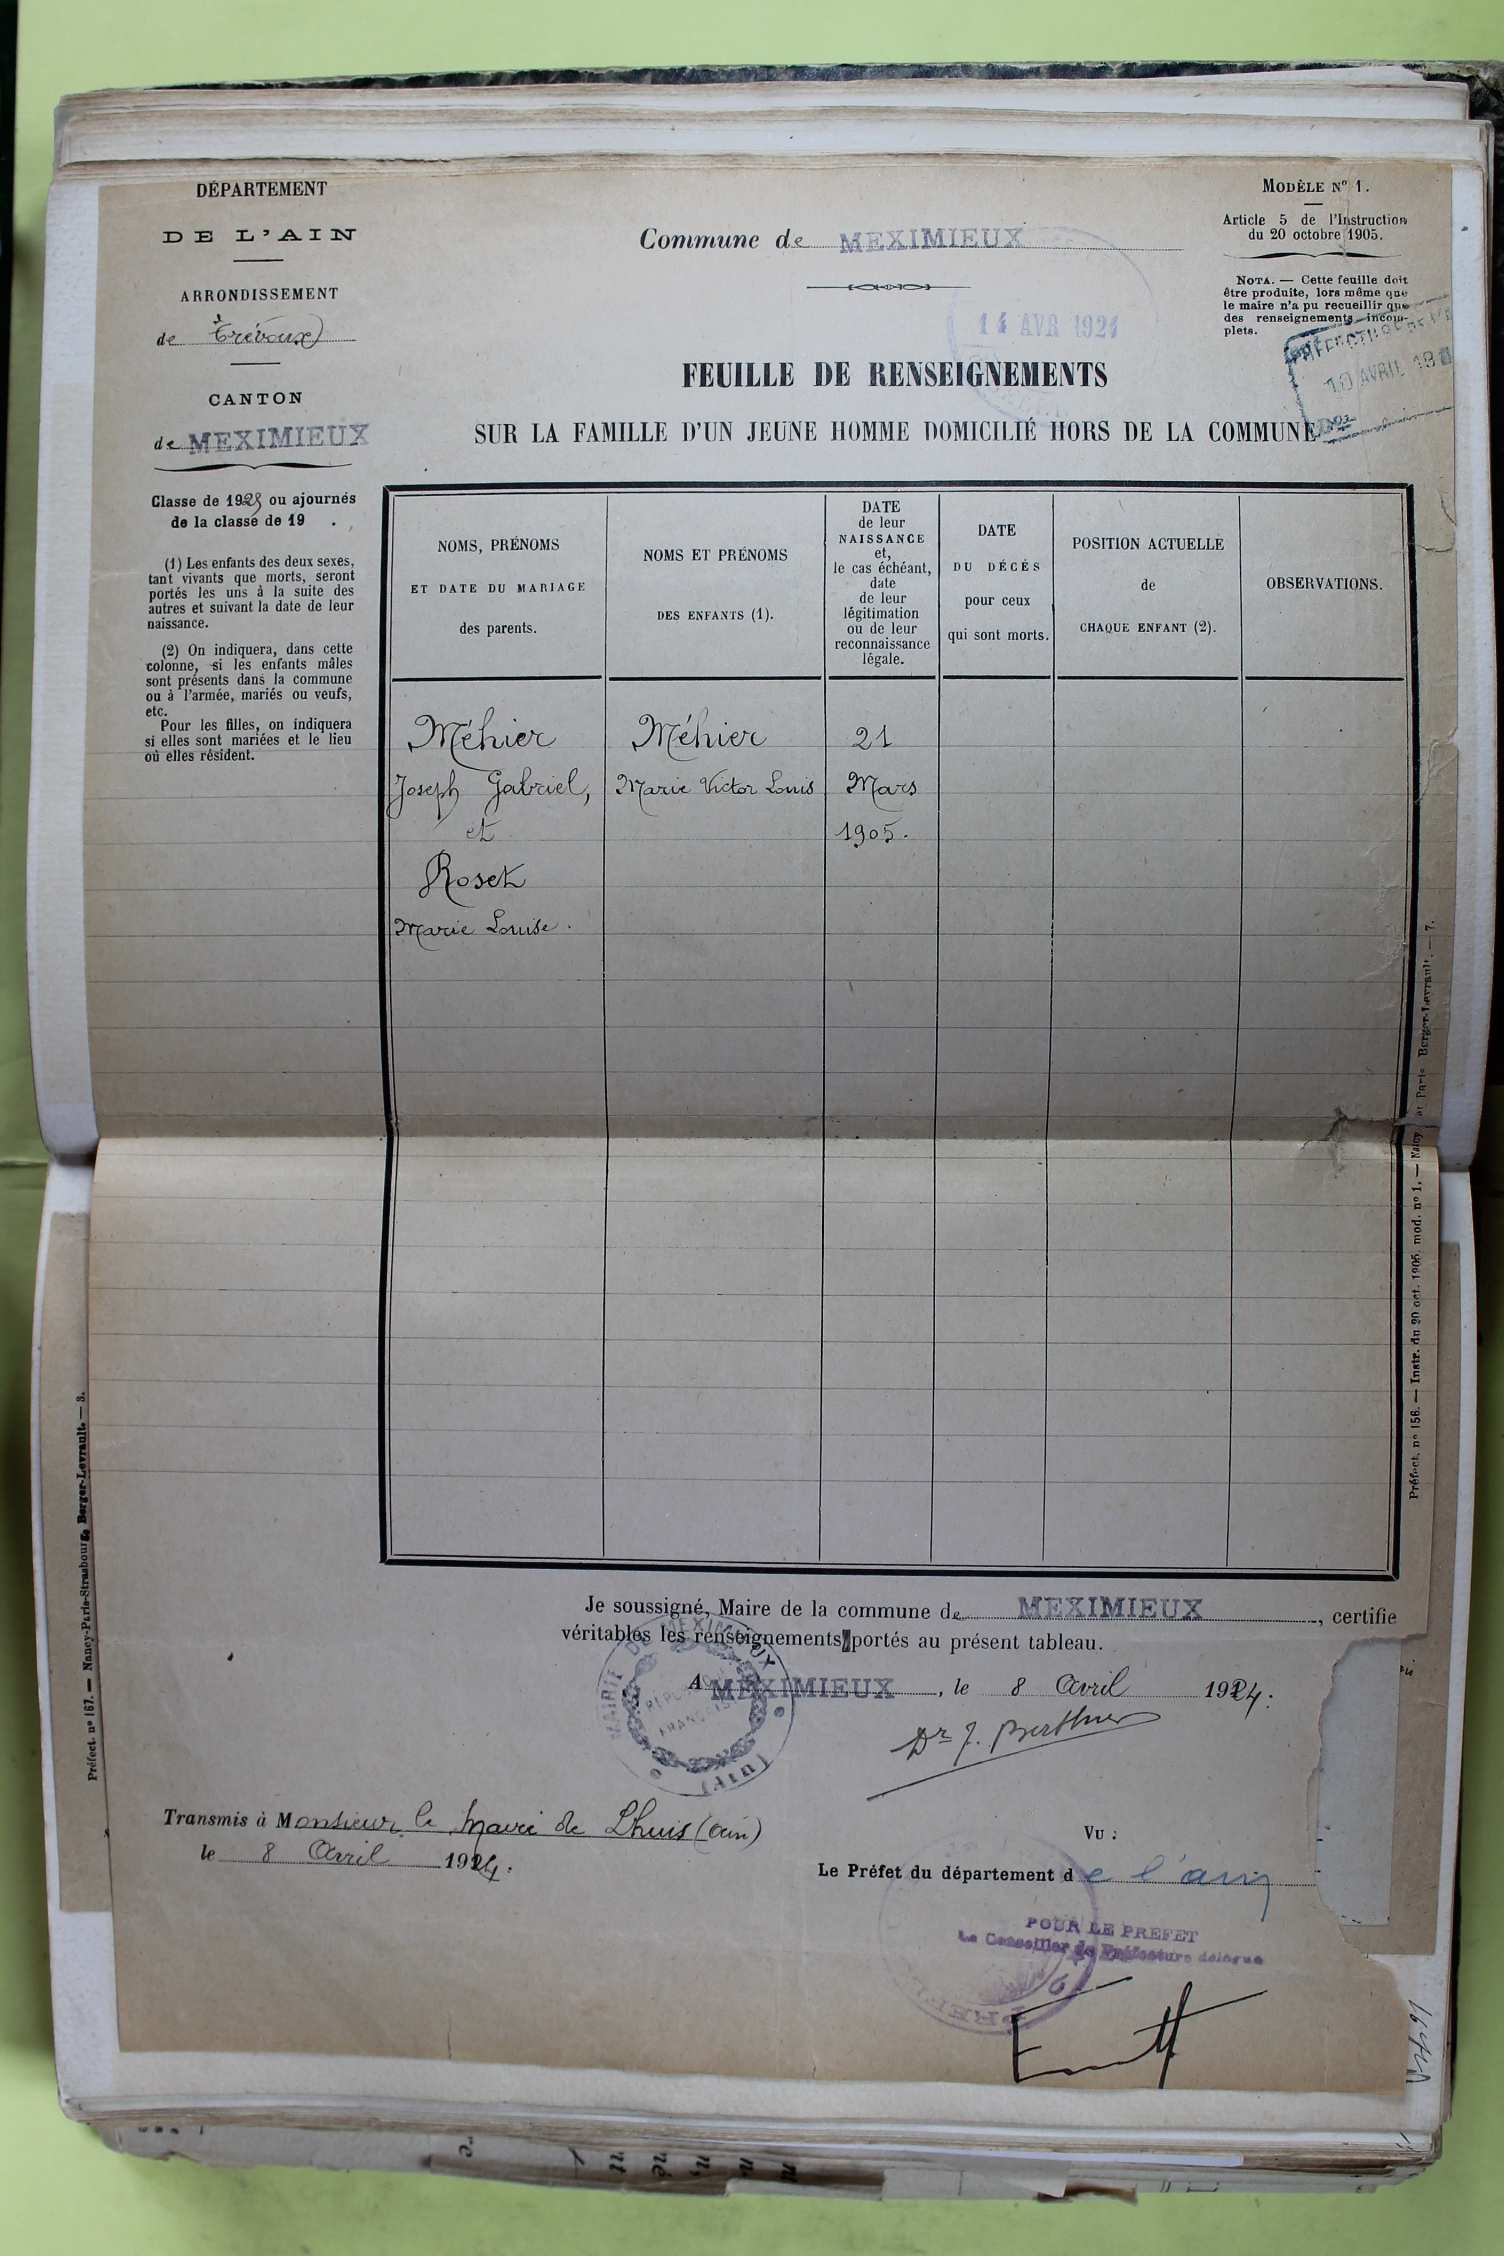 DÉPARTEMENT
DE L'AIN
ARRONDISSEMENT
de Trévoux
CANTON
de MEXIMIEUX
Commune de MEXIMIEUX
14 AVR 1924
MODÈLE Nº 1.
Article 5 de l'Instruction
du 20 octobre 1905.
NOTA. — Cette feuille doit
être produite, lors même que
le maire n'a pu recueillir que
des renseignements incom-
plets.
10 AVRIL
FEUILLE DE RENSEIGNEMENTS
SUR LA FAMILLE D'UN JEUNE HOMME DOMICILIÉ HORS DE LA COMMUNE
Classe de 1925 ou ajournés
de la classe de 19 .
(1) Les enfants des deux sexes,
tant vivants que morts, seront
portés les uns à la suite des
autres et suivant la date de leur
naissance.
(2) On indiquera, dans cette
colonne, si les enfants mâles
sont présents dans la commune
ou à l'armée, mariés ou veufs,
etc.
Pour les filles, on indiquera
si elles sont mariées et le lieu
où elles résident.
NOMS, PRÉNOMS
ET DATE DU MARIAGE
des parents.
NOMS ET PRÉNOMS
DES ENFANTS (1).
DATE
de leur
NAISSANCE
et,
le cas échéant,
date
de leur
légitimation
ou de leur
reconnaissance
légale.
DATE
DU DÉCÈS
pour ceux
qui sont morts.
POSITION ACTUELLE
de
CHAQUE ENFANT (2).
OBSERVATIONS.
Méhier
Joseph Gabriel,
et
Roset
Marie Louise.
Méhier
Marie Victor Louis
21
Mars
1905.
Préfect. nº 156. — Instr. du 20 oct. 1905, mod. nº 1. — Nancy et Paris Berger-Levrault. — 7.
Préfect. nº 167. — Nancy-Paris-Strasbourg, Berger-Levrault. — 3.
Je soussigné, Maire de la commune de MEXIMIEUX, certifie
véritables les renseignements portés au présent tableau.
A MEXIMIEUX, le 8 Avril 1924.
MAIRIE DE MEXIMIEUX
RÉPUBLIQUE
FRANÇAISE
(AIN)
Dr J. Berthier
Transmis à Monsieur le Maire de Lhuis (Ain)
le 8 Avril 1924.
VU :
Le Préfet du département de l'Ain
POUR LE PREFET
Le Conseiller de Préfecture délégué